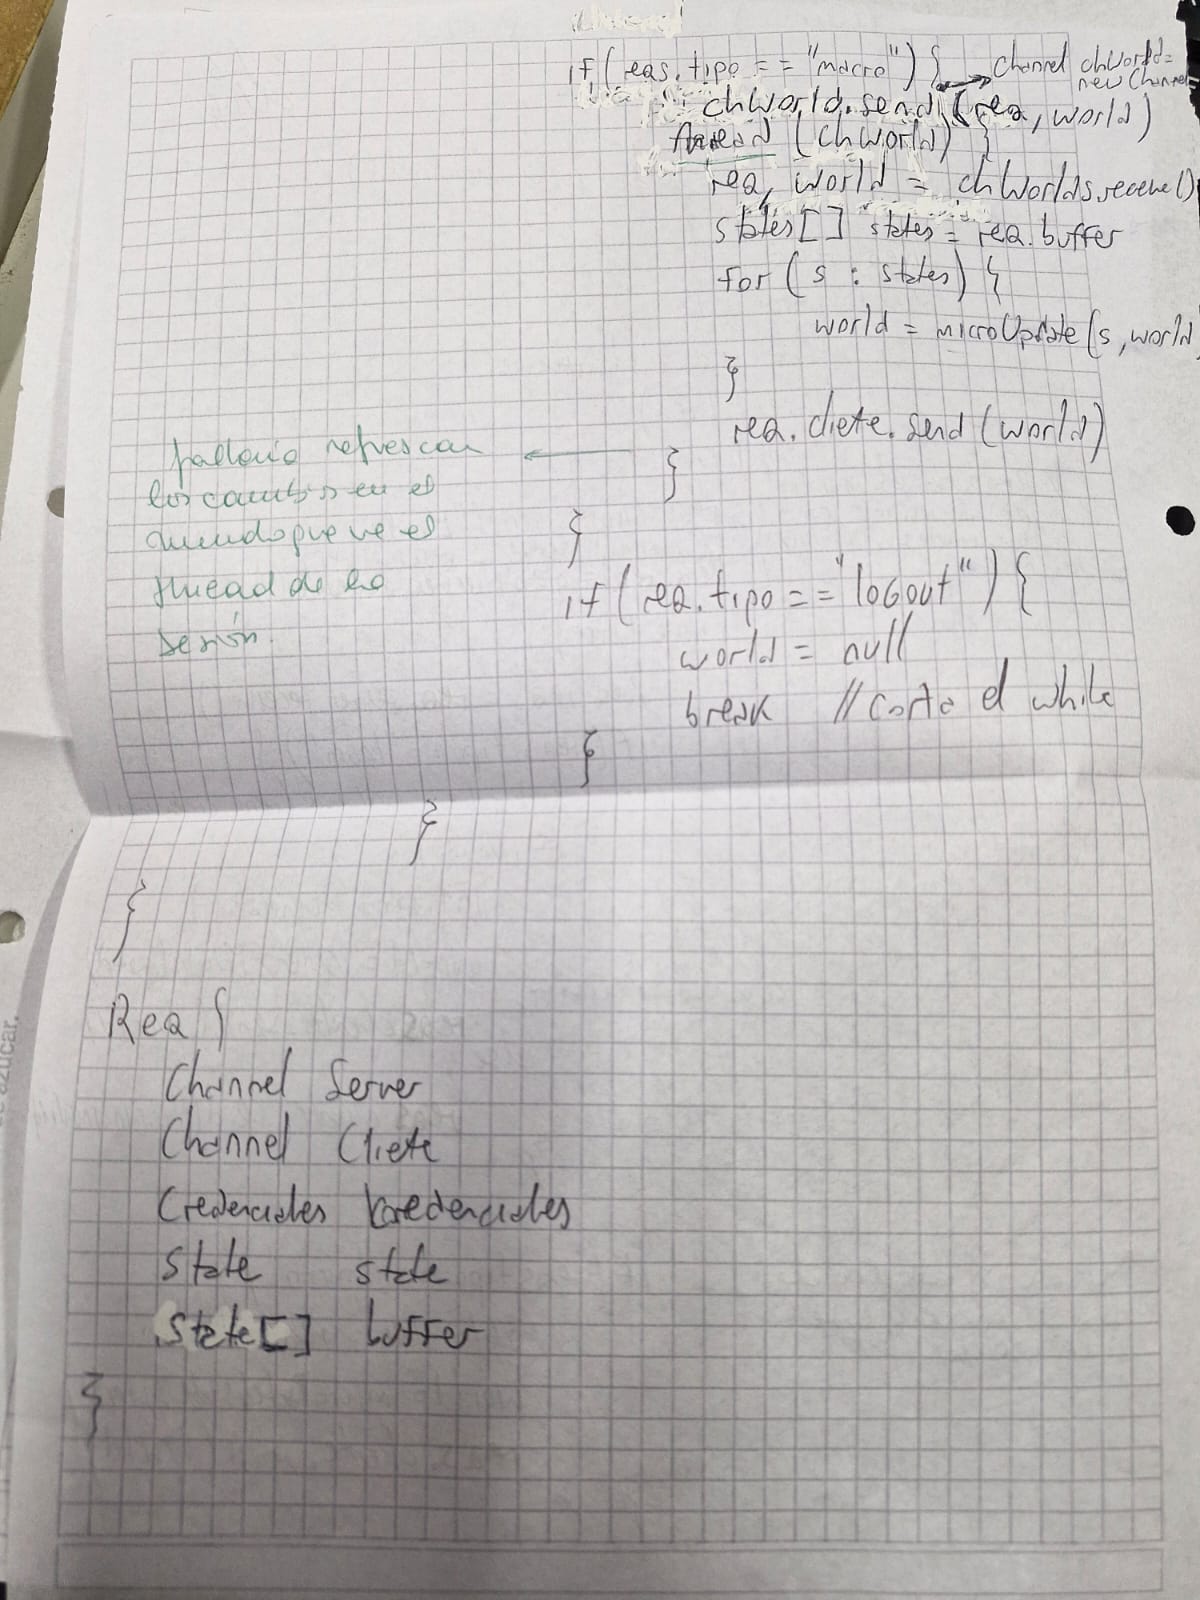 if (req.tipo == "macro") {
Channel chWorld =
new Channel
chWorld.send (req, world)
thread (chWorld) {
req, world = chWorlds.receive()
states[] states = req.buffer
for (s : states) {
world = microUpdate(s, world
}
req.cliete.send (world)
}
fallaría refrescar
los cambios en el
mundo que ve el
thread de la
sesión.
}
if (req.tipo == "logout") {
world = null
break // corta el while
}
}
}
Req {
Channel Server
Channel Cliete
Credenciales credenciales
State state
State[] buffer
}
azúcar.